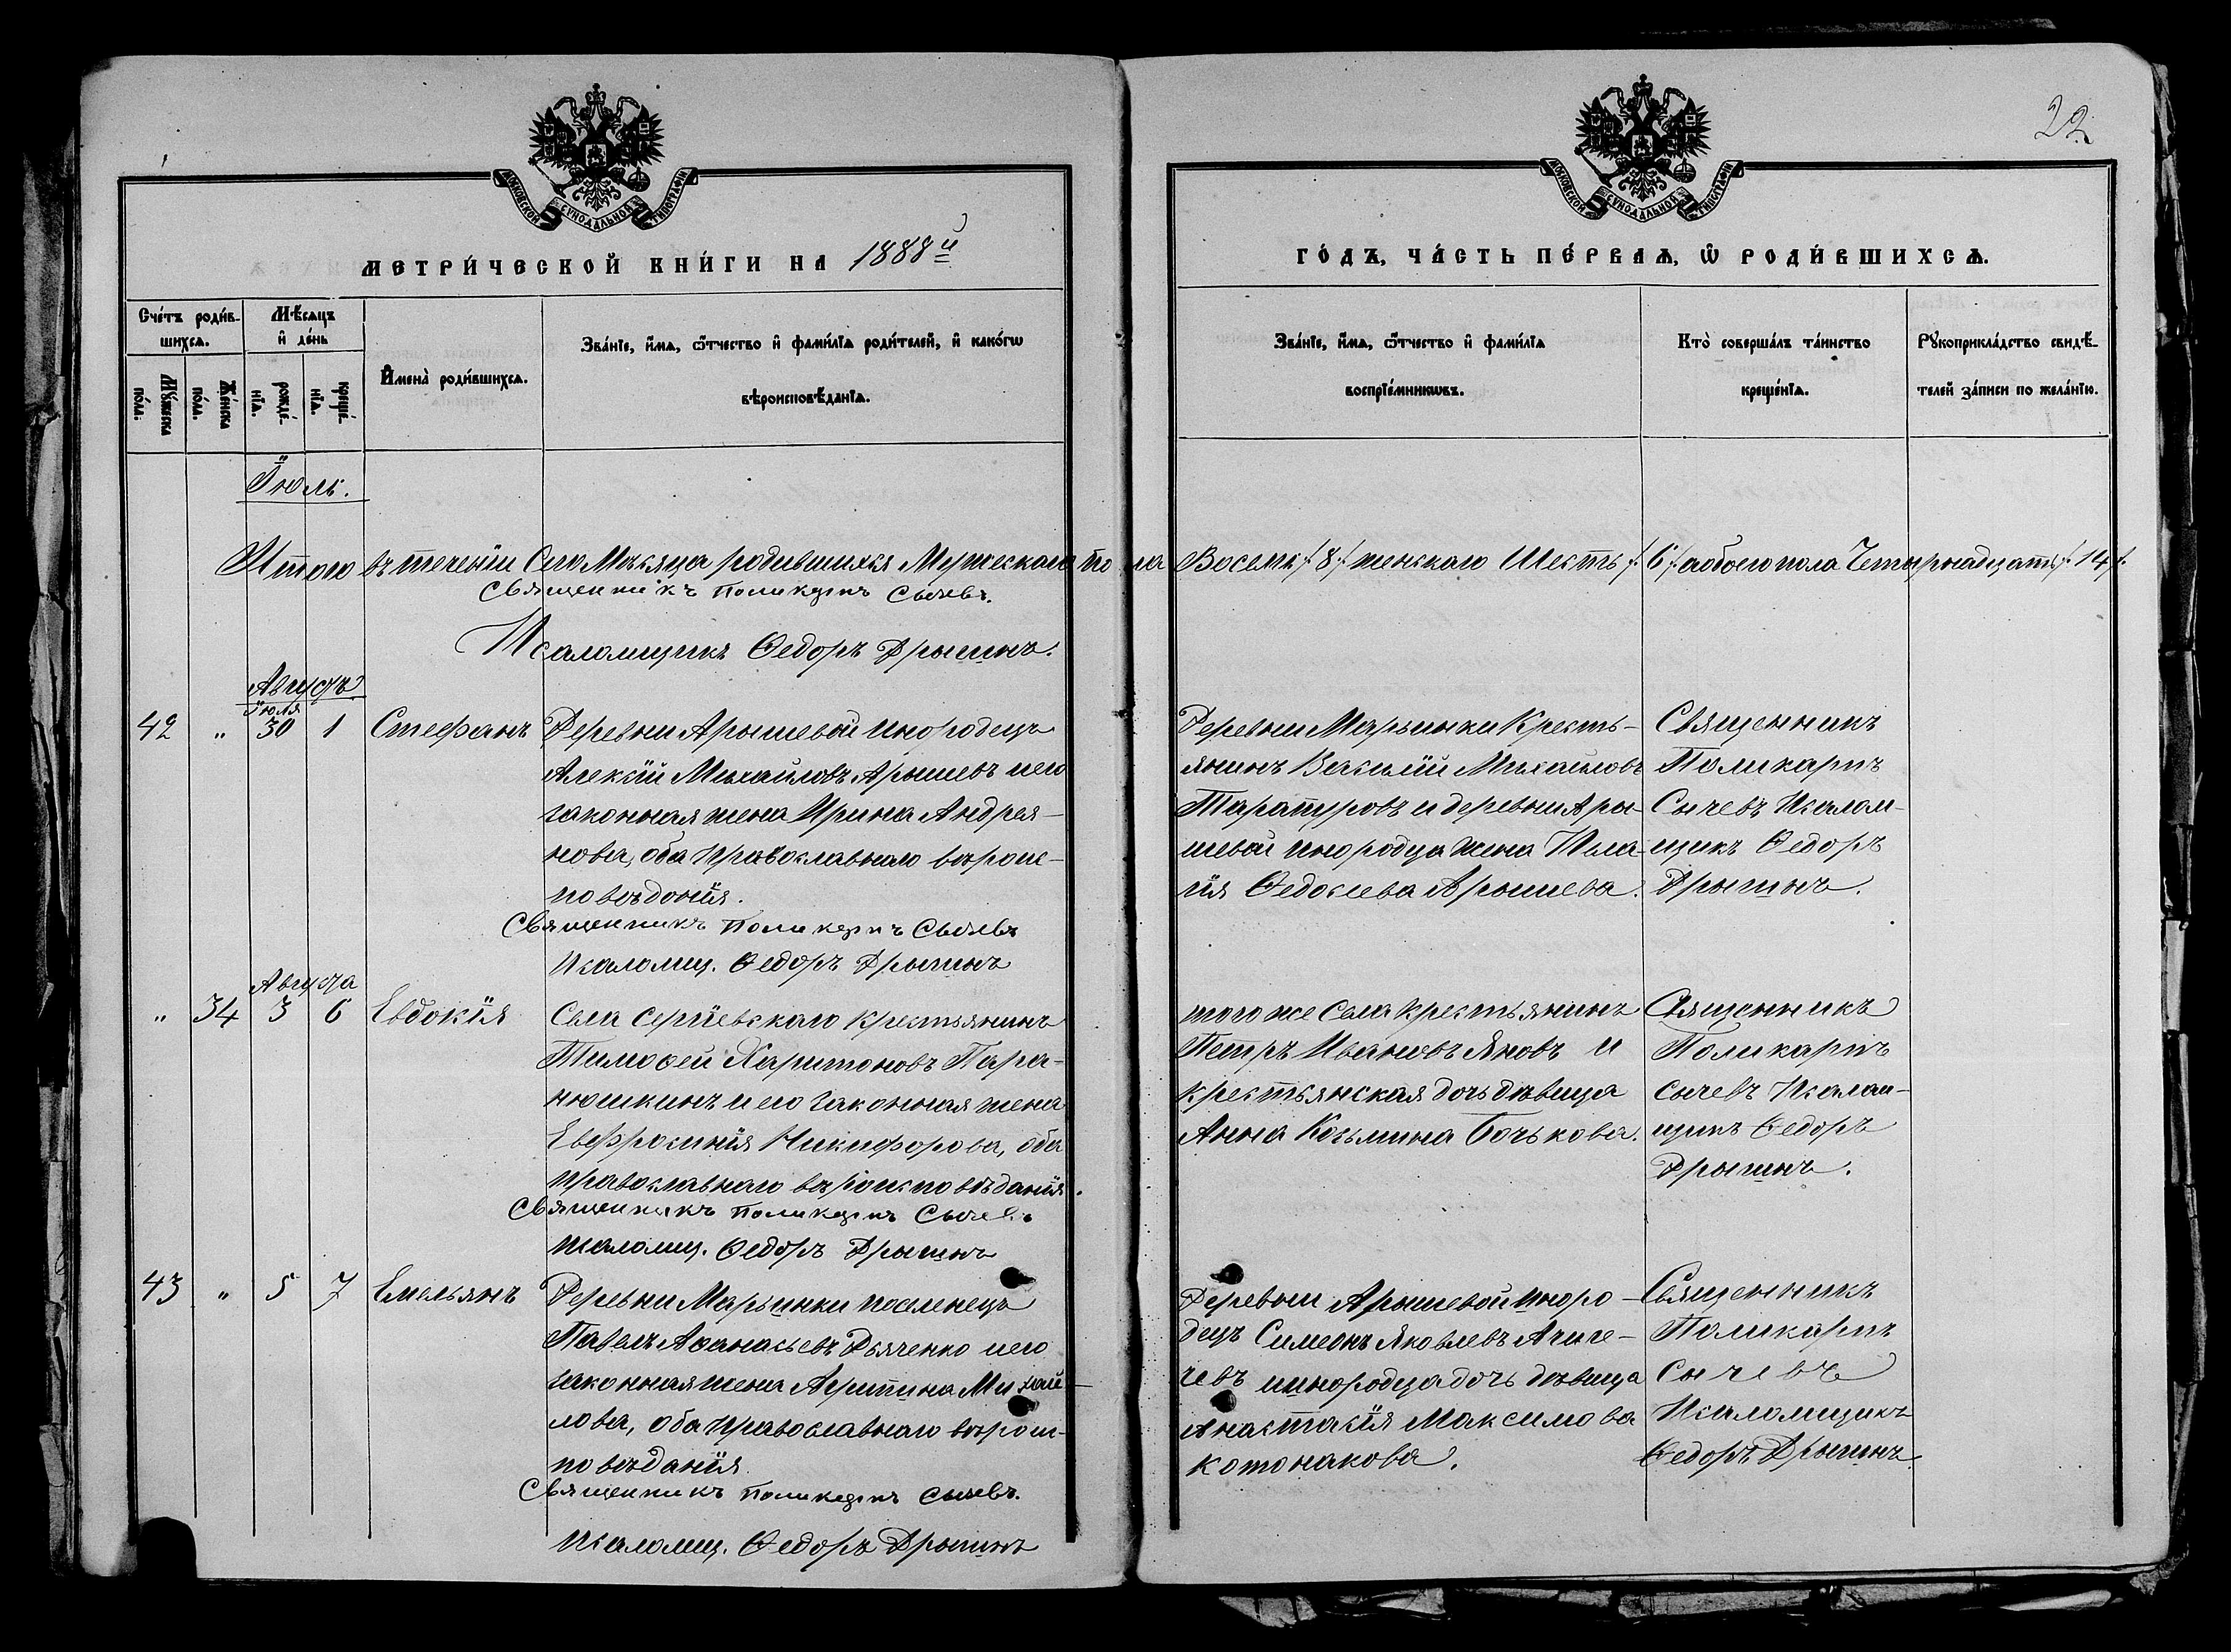 22
МОСКОВСКОЙ СУНОДАЛЬНОЙ ТИПОГРАФІИ
МОСКОВСКОЙ СУНОДАЛЬНОЙ ТИПОГРАФІИ
МЕТРИ́ЧЕСКОЙ КНИ́ГИ НА 1888й
ГО́ДЪ, ЧА́СТЬ ПЕ́РВАѦ, Ѿ РОДИ́ВШИХСѦ.
Сче́тъ роди́в-
шихсѧ.
Мѣ́сѧцъ
и҆ де́нь
Мꙋ́жеска
по́ла:
Же́нска
по́ла.
рожде́-
нїѧ.
креще́-
нїѧ.
И҆мена̀ роди́вшихсѧ.
Зва́нїе, и҆́мѧ, ѻ҆́тчество и҆ фами́лїѧ роди́телей, и҆ како́гѡ
вѣроисповѣ́данїѧ.
Зва́нїе, и҆́мѧ, ѻ҆́тчество и҆ фами́лїѧ
воспрїе́мникѡвъ.
Кто̀ соверша́лъ та́инство
креще́нїѧ.
Рꙋкоприкла́дство свидѣ́-
телей за́писи по жела́нїю.
Іюль.
Итого въ теченіи Сего Мѣсяца родившихся Мужескаго пола Восемь /8/. женскаго Шесть /. 6 /. а обоего пола Четырнадцать /. 14 /.
Священникъ Поликарпъ Сычевъ.
Псаломщикъ Ѳедоръ Дрыгинъ.
Августъ
Іюля
42 " 30 1 Стефанъ
Деревни Арышевой инородецъ
Алексій Михайловъ Арышевъ и его
законная жена Ирина Андрея-
нова, оба православнаго вѣроис-
повѣдонія.
Священникъ Поликарпъ Сычевъ
Псаломщ. Ѳедоръ Дрыгинъ
Деревни Марьинки Кресть-
янинъ Василій Михайловъ
Таратуровъ и деревни Ары-
шевой инородца жена
Ѳедосеева Арышева.
Священникъ
Поликарпъ
Сычевъ Псалом-
щикъ Ѳедоръ
Дрыгинъ.
Августа
" 34 3 6 Евдокія
Села Сергіевскаго крестьянинъ
Тимоѳей Харитоновъ Пара-
нюшкинъ и его законная жена
Евфросинія Никифорова, оба
православнаго вѣроисповѣданія.
Священникъ Поликарпъ Сычевъ
Псаломщ. Ѳедоръ Дрыгинъ
того же Села крестьянинъ
Петръ Ивановъ Яновъ и
крестьянская дочь дѣвица
Анна Козьмина Бочькова.
Священникъ
Поликарпъ
Сычевъ Псалом-
щикъ Ѳедоръ
Дрыгинъ.
43 " 5 7 Емельянъ
Деревни Марьинки поселенецъ
Павелъ Аѳанасьевъ Дьяченко и его
законная жена Михай-
лова, оба православнаго вѣроис-
повѣданія.
Священникъ Поликарпъ Сычевъ.
Псаломщ. Ѳедоръ Дрыгинъ
Деревни Арышевой иноро-
децъ Симеонъ Яковлевъ Ачиге-
чевъ инородца дочь дѣвица
Анастасія Максимова
Котонакова.
Священникъ
Поликарпъ
Сычевъ
Псаломщикъ
Ѳедоръ Дрыгинъ.